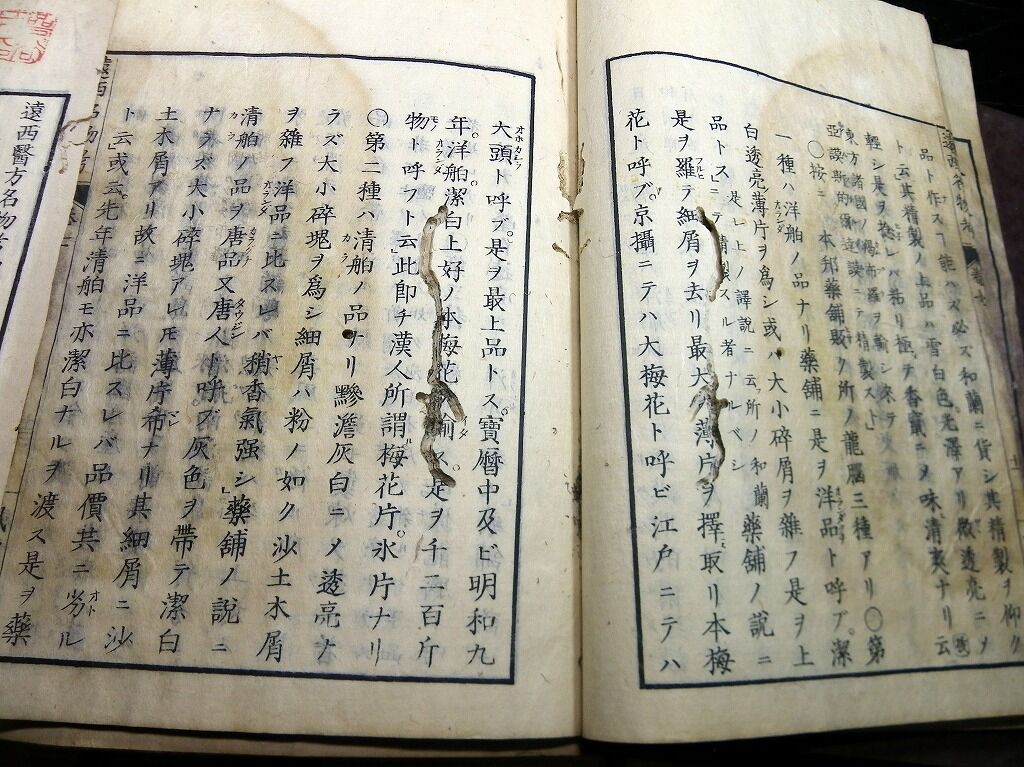 品ト作ス丁能ハズ必ズ和蘭ニ貨シ其精製ヲ仰ク
ト云其精製ノ上品ハ雪白色光澤アリ微透亮ニメ
輕シ是ヲ
極テ香竄ニメ味清爽ナリ云
東方諸國ノ
亞謨斯的爾達謨ニテ精製スト
〇按ニ 本邦藥舗販ク所ノ龍腦三種アリ〇第
一種ハ洋舶ノ品ナリ藥舗ニ是ヲ洋品ト呼ブ潔
白透亮薄片ヲ爲シ或ハ大小碎屑ヲ雜フ是ヲ上
品トス 是レ上ノ譯說ニ云フ所ノ和蘭ニテ精製スル者ナルベシ 藥舗ノ說ニ
是ヲ羅テ細屑ヲ去リ最大ノ薄片ヲ擇取リ本梅
花ト呼ブ京攝ニテハ大梅花ト呼ビ江戸ニテハ
大頭ト呼ブ。是ヲ最上品トス。寶曆中及ビ明和九
年。洋舶潔白上好ノ本梅花ヲ輸ス。是ヲ千二百斤
物ト呼フト云此卽チ漢人所謂梅花片。氷片ナリ
〇第二種ハ清舶ノ品ナリ黲澹灰白ニメ透亮ナ
ラズ大小碎塊ヲ爲シ細屑ハ粉ノ如ク沙土木屑
ヲ雜フ洋品ニ比スレバ稍香氣强シ」藥舗ノ說ニ
清舶ノ品ヲ唐品又唐人ト呼ブ灰色ヲ帶テ潔白
ナラズ大小碎塊アレモ薄片希ナリ其細屑ニ沙
土木屑アリ故ニ洋品ニ比スレバ品價共ニ劣ル
ト云」或云。先年清舶モ亦潔白ナルヲ渡ス是ヲ藥
遠西醫方名物考